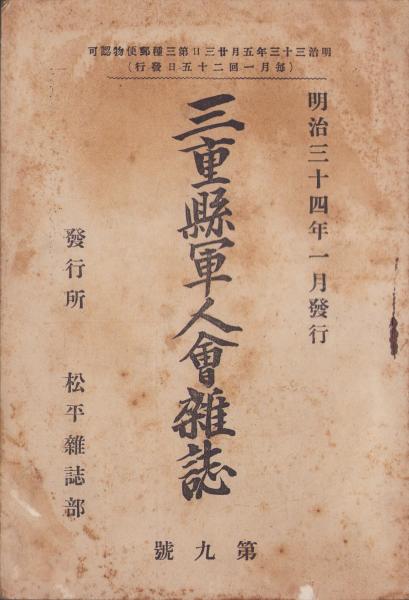 明治三十三年五月廿三日第三種郵便物認可
(每月一回二十五日發行)
明治三十四年一月發行
三重縣軍人會雜誌
發行所 松平雜誌部
第九號